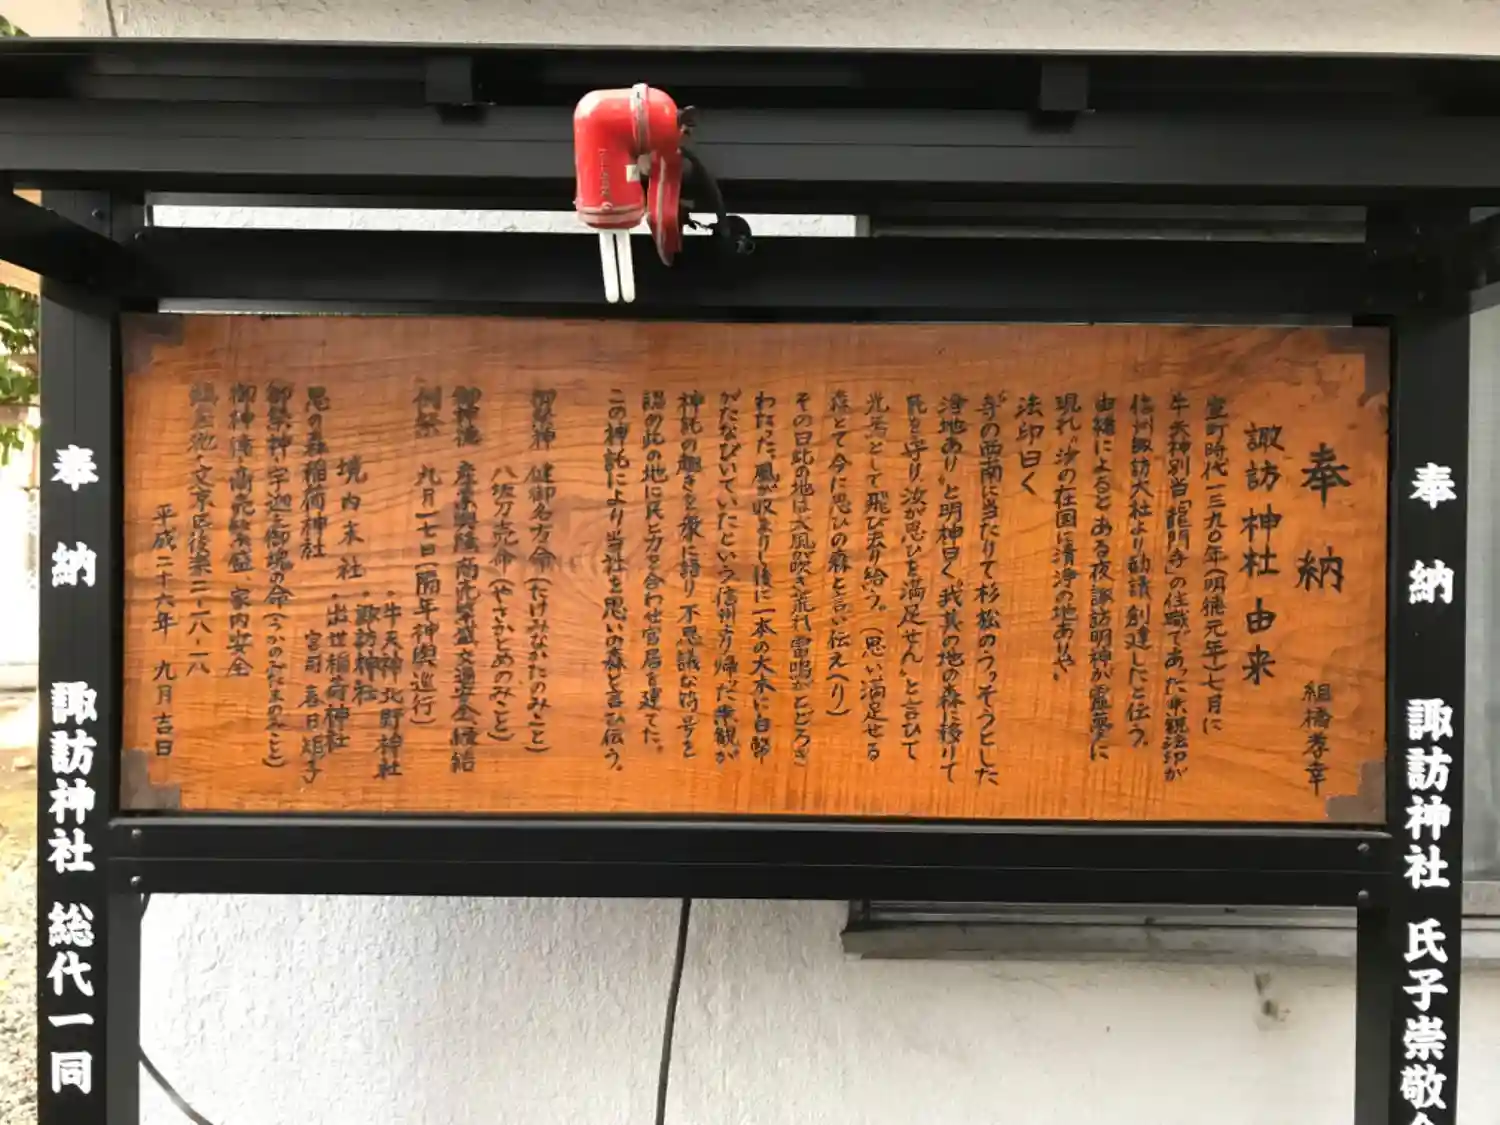 奉納
組橋孝幸
諏訪神社由来
室町時代一三九〇年(明徳元年)七月に
牛天神別当「龍門寺」の住職であった
信州諏訪大社より勧請創建したと伝う。
由緒によると ある夜諏訪明神が霊夢に
現れ
法印曰く
寺の西南に当たりて杉松のうっそうとした
浄地あり”と明神曰く“我其の地の森に移りて
氏を守り汝が思ひを満足せん”と言ひて
として飛び去り給う。(思い満足せる
森とて今に思ひの森と言い伝え
その日此の地は大風が吹き荒れ雷鳴がとどろき
わたった。風が収まりし後に一本の大木に白幣
がたなびいていたという信州
神託の趣きを衆に語り 不思議な符号を
此の地に氏と力を合わせ宮居を建てた。
この神託により当社を思いの森と言ひ伝う。
御祭神 健御名方命(たけみなかたのみこと)
八坂刀売命(やさかとめのみこと)
御神徳 産業興隆 商売繁盛 交通安全 縁結
例祭 九月二七日(隔年神輿巡行)
境内末社
・牛天神北野神社
・諏訪神社
・出世稲荷神社
思の森稲荷神社
宮司 春日
御祭神 宇迦之御魂の命(うかのみたまのみこと)
御神徳 商売繁盛、家内安全
鎮座地 文京区後楽二-一八-一八
平成二十六年 九月吉日
奉納 諏訪神社 氏子崇敬会
奉納 諏訪神社 総代一同